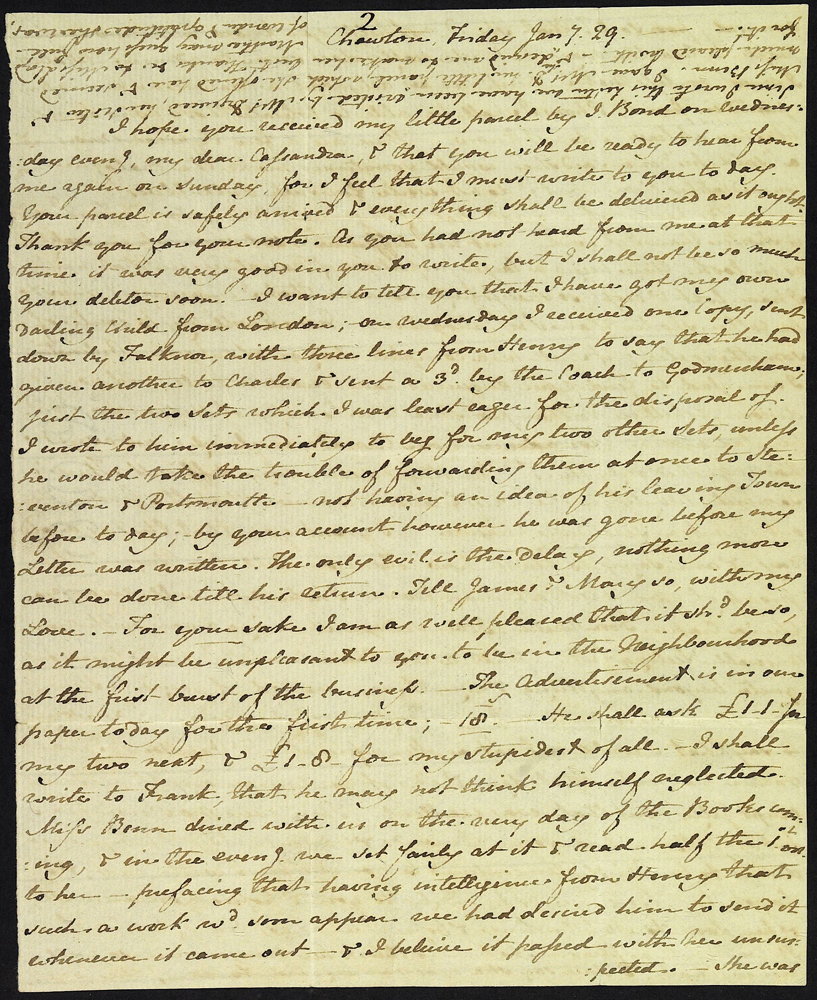 2
Chawton, Friday Jany. 29.
I hope you received my little parcel by J. Bond on Wednes:
:day eveng, my dear Cassandra, & that you will be ready to hear from
me again on Sunday, for I feel that I must write to you to day.
Your parcel is safely arrived & everything shall be delivered as it ought.
Thank you for your note. As you had not heard from me at that
time it was very good in you to write, but I shall not be so much
your debtor soon. — I want to tell you that I have got my own
darling Child from London; — on Wednesday I received one Copy, sent
down by Falknor, with three lines from Henry to say that he had
given another to Charles & sent a 3d. by the Coach to Godmersham;
just the two Sets which I was least eager for the disposal of.
I wrote to him immediately to beg for my two other Sets, unless
he would take the trouble of forwarding them at once to Ste:
:venton & Portsmouth — not having an idea of his leaving Town
before to day; — by your account however he was gone before my
Letter was written. The only evil is the delay, nothing more
can be done till his return. Tell James & Mary so, with my
Love. — For your sake I am as well pleased that it shd. be so,
as it might be unpleasant to you to be in the Neighbourhood
at the first burst of the business. — The Advertisement is in our
paper to day for the first time; — 18s. — He shall ask £1-1- for
my two next, & £1-8- for my stupidest of all. — I shall
write to Frank, that he may not think himself neglected.
Miss Benn dined with us on the very day of the Books com:
:ing, & in the eveng. we set fairly at it & read half the 1st vol.
to her — prefacing that having intelligence from Henry that
such a work wd. soon appear we had desired him to send it
whenever it came out — & I believe it passed with her unsus:
:pected. — She was
Since I wrote this letter we have been visited by Mrs Digweed, her Sister &
Miss Benn. I gave Mrs D. her little parcel, which she opened here & seemed
much pleased with — & she desired me to make her best Thanks &c. to Miss Lloyd
for it. — Martha may guess how full
of wonder & gratitude she was.